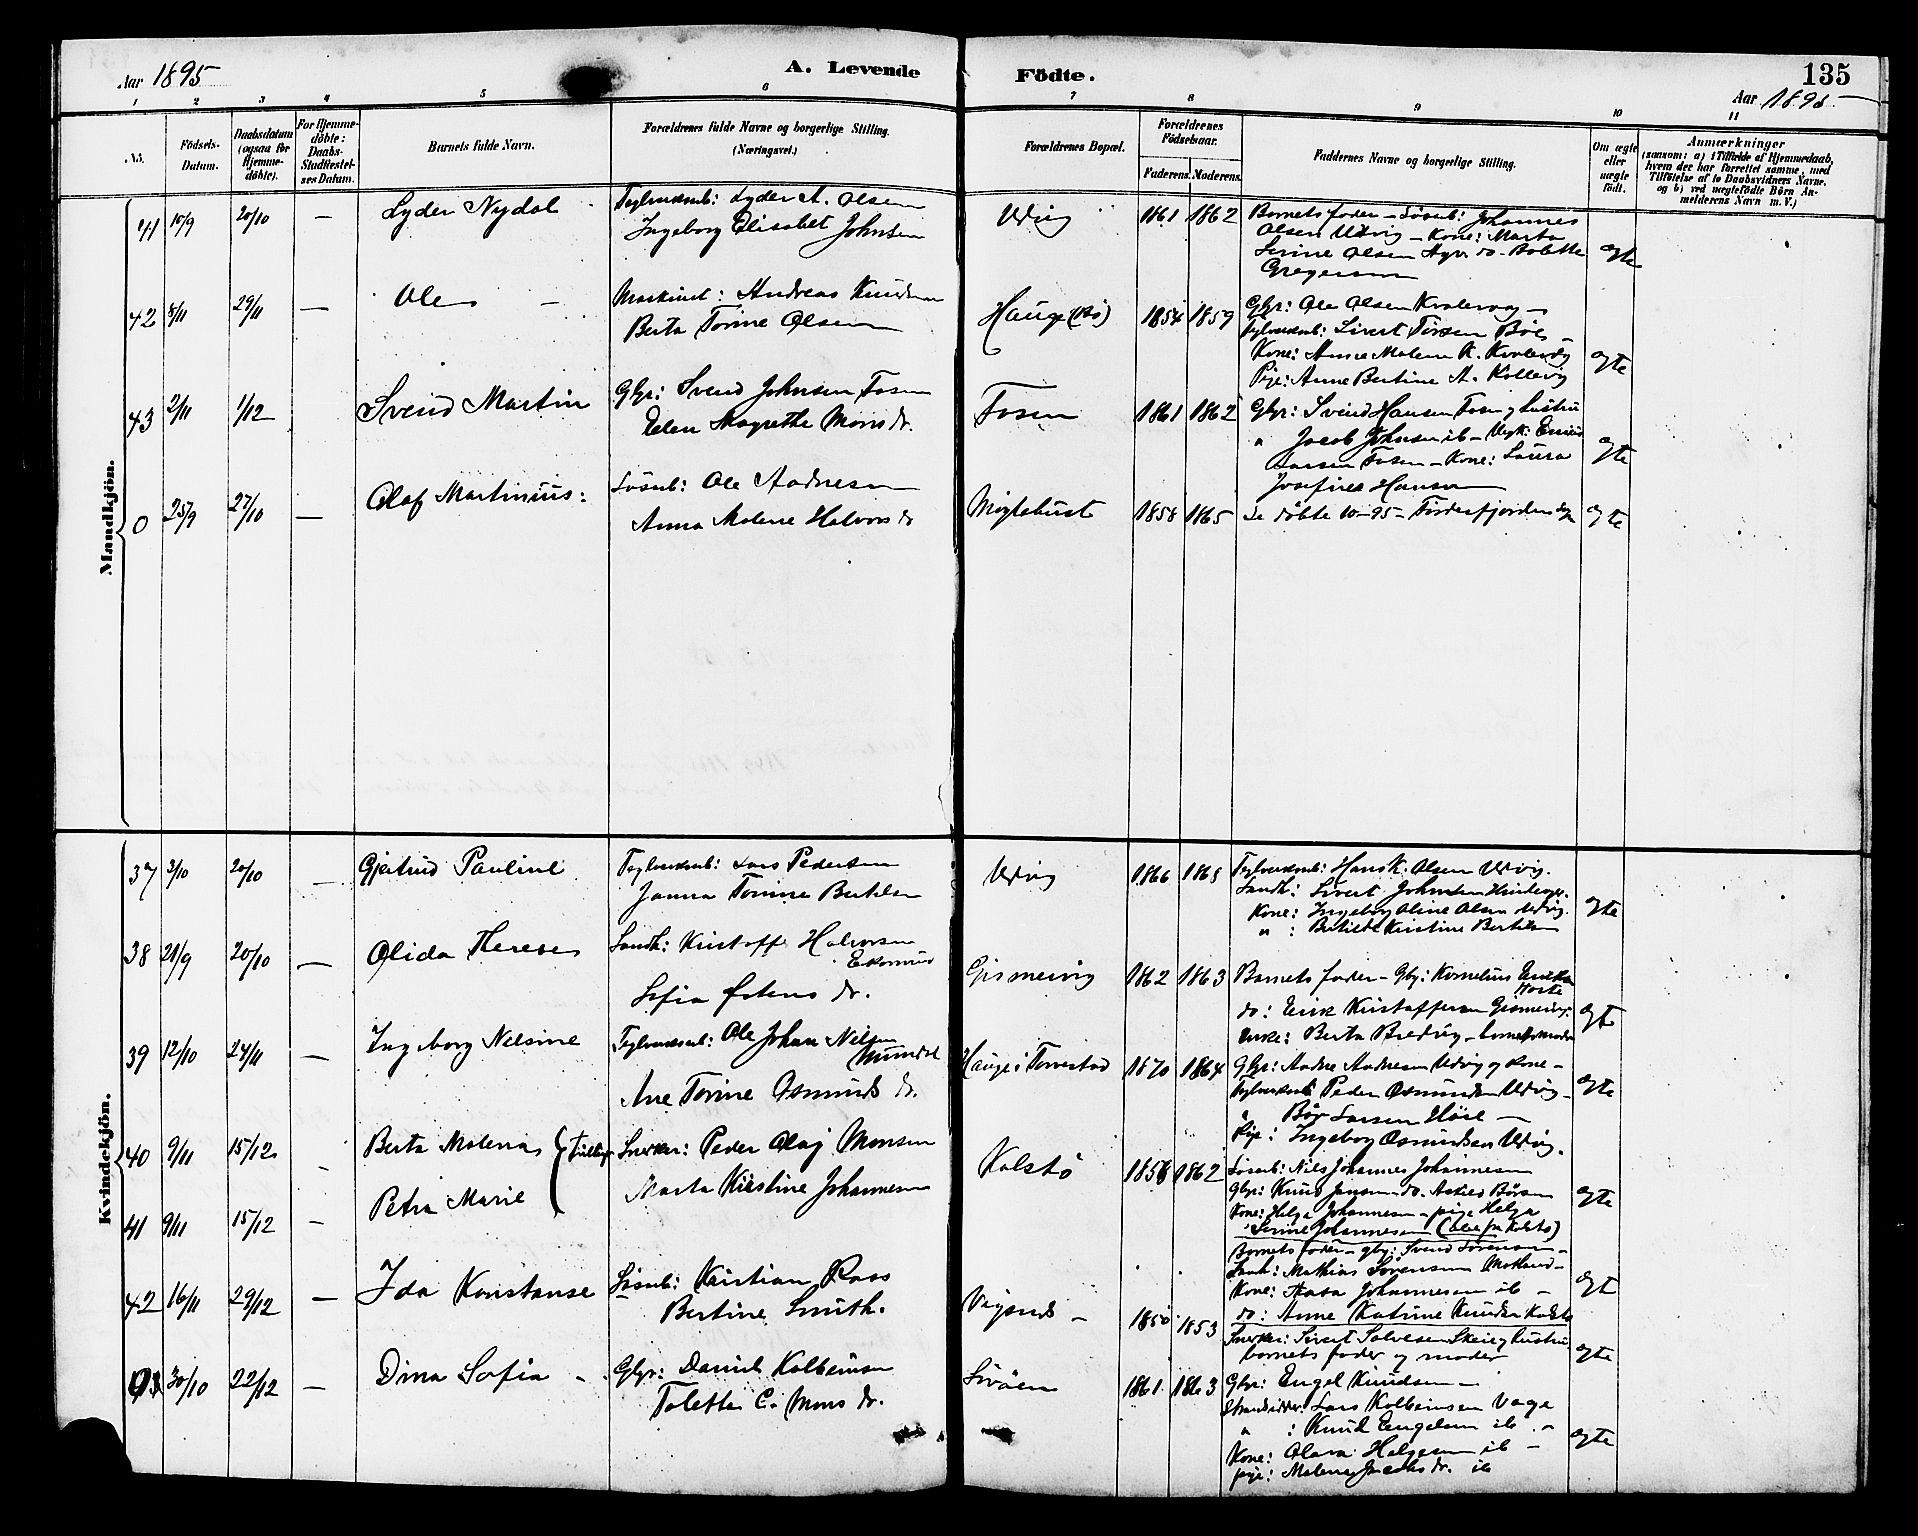 Aar 1895
A. Levende
Födte.
135
Aar 1895
1 2 3 4 5 6 7 8 9 10 11
No.
Födsels-Datum.
Daabsdatum (ogsaa for Hjemme-döbte).
For Hjemme-döbte: Daabs-Stadfæstel-ses Datum.
Barnets fulde Navn.
Forældrenes fulde Navne og borgerlige Stilling. (Næringsvei.)
Forældrenes Bopæl.
Forældrenes Födselsaar.
Faderens. Moderens.
Faddernes Navne og borgerlige Stilling.
Om ægte eller uægte födt.
Anmærkninger
(saasom: a) i Tilfælde af Hjemmedaab, hvem der har forrettet samme, med Tilföielse af to Daabsvidners Navne, og b) ved uægtefödte Börn An-melderens Navn m. V.)
Mandkjön.
41 10/9 20/10 — Lyder Nydal Teglverksarb: Lyder A. Olsen
Ingeborg Elisabet Johnsen
Udvig 1861 1862 Barnets fader – Løsarb: Johannes
Olsen Udvig – Kone: Marta
Serine Olsen do – Bolette
Gregersen
ægte
42 8/11 29/11 — Ole – Maskinst: Andreas Knudsen
Berta Torine Olsen
Hauge (Bø) 1854 1859 Gbr: Ole Olsen Kvalevog –
Teglverksarb: Sivert Børsen
Kone: Anne Malene K. Kvalevåg
Pige: Anne Bertine A. Kollevig
ægte
43 2/11 1/12 Svend Martin Gbr: Svend Johnsen Fosen
Elen Magrethe Mons dr.
Fosen 1861 1862 Gbr: Svend Hansen Fosen og hustru
" Jacob Johnsen ib –
Larsen Fosen – Kone: Laura
Josefine Hansen
ægte
0 25/9 27/10 — Olaf Martinius: Løsarb: Ole Aadnesen
Anna Malene Halvors dr
Møgtebust 1858 1865 Se døbte 10–95 – Førdesfjorden
ægte
Kvindekjön.
37 3/10 20/10 — Gjertrud Pauline Teglverksarb: Lars Pedersen
Janna Tomine Bertelsen
Udvig 1866 1865 Teglverksarb: Hans K. Olsen Udvig.
Landh: Sivert Johnsen
Kone: Ingeborg Oline Olsen Udvig.
" : Kristine Bertelsen
ægte
38 21/9 20/10 — Olida Therese Landh: Kristoffer Halvorsen
Sofia Østens dr.
Gismervig 1862 1863 Barnets fader – Gbr: Kornelius
do: Erik Kristoffersen Gismervig:
Enke: Berta Bredvig – barnets moder
ægte
39 12/10 24/11 — Ingeborg Nelsine Teglverksarb: Ole Johan Nilsen
Ane Torine Osmunds dr.
Hauge i Torvestad 1870 1864 Gbr: Aadne Aadnesen Udvig og kone –
Teglverksarb Peder Osmundsen Udvig –
" Bør Larsen
Pige: Ingeborg Osmundsen Udvig.
ægte
40 9/11 15/12 – Berta Malena } Tvilling Snekker: Peder Olaj Monsen
41 9/11 15/12 – Petra Marie Marta Kirstine Johannesen
Kolstø 1858 1862 Løsarb: Nils Johannes Johannesen
Gbr: Knud Jansen – do. Askild Børsen
Kone: Helga Johannesen – pige Helga
Serine Johannesen (alle fra Kolstø)
ægte
42 16/11 29/12 — Ida Konstanse Løsarb: Kristian Roos
Bertine Smith.
Vigsnes – 1850 1853 Barnets fader – gbr: Svend Sørensen –
Landh: Mathias Sørensen Mokland –
Kone: Johannesen ib –
do: Anne Katrine Knudsen Kolstø
ægt
30/10 22/12 — Dina Sofia Gbr: Daniel Kolbeinsen
Tolette C. Mons dr.
1861 1863 Snekker: Sivert Salvesen Skeie og hustru
barnets fader og moder
Gbr: Engel Knudsen –
Strandsidder: Lars Kolbeinsen Vage
" : Knud Engelsen ib –
Kone: Olava Helgesen ib –
pige: Malene Jacobs dr. ib
ægte
ægte